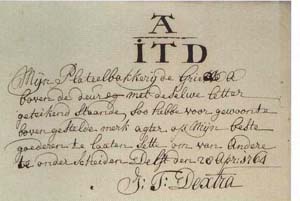 A
ITD
Mijn Plateelbakkery de Grieksd A
boven de deur en met deselve letter
getekend staande, soo hebbe voor gewoonte
boven gestelde merk agter op Mijn beste
goederen te laaten sette om van Andere
te onderscheiden Delft den 20 April 1764
J: T: Dextra